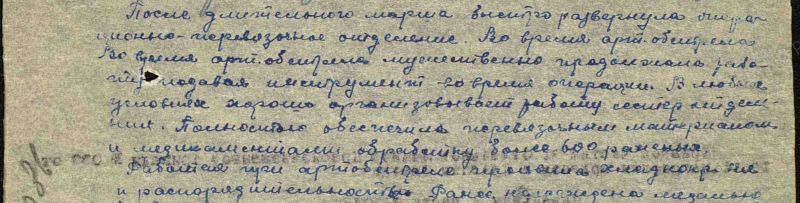 После длительного марша быстро развернула опера-
ционно-перевязочное отделение. Во время арт. обстрела
Во время арт. обстрела мужественно продолжала рабо-
подавая инструмент во время операции. В любых
условиях хорошо организовывает работу сестер отделе-
ния. Полностью обеспечила перевязочным материалом
и медикаментами обработку более 600 раненых.
Работая при артобстреле проявила
и распорядительность. Ранее награждена медалью